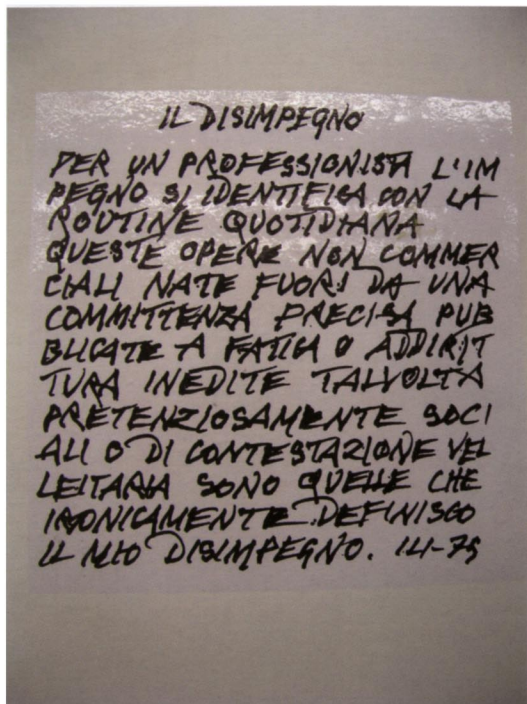 IL DISIMPEGNO
PER UN PROFESSIONISTA L'IM
PEGNO SI IDENTIFICA CON LA
ROUTINE QUOTIDIANA
QUESTE OPERE NON COMMER
CIALI NATE FUORI DA UNA
COMMITTENZA PRECISA PUB
BLICATE A FATICA O ADDIRIT
TURA INEDITE TALVOLTA
PRETENZIOSAMENTE SOCI
ALI O DI CONTESTAZIONE VEL
LEITARIA SONO QUELLE CHE
IRONICAMENTE DEFINISCO
IL MIO DISIMPEGNO.